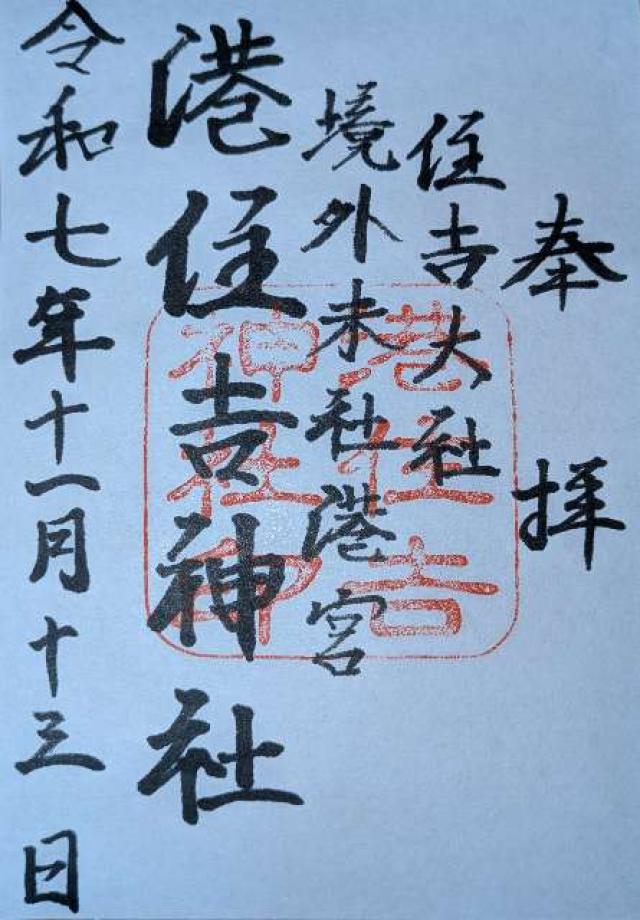 奉拝
住吉大社
境外末社港宮
港住吉神社
令和七年十一月十三日
港住吉
神社印